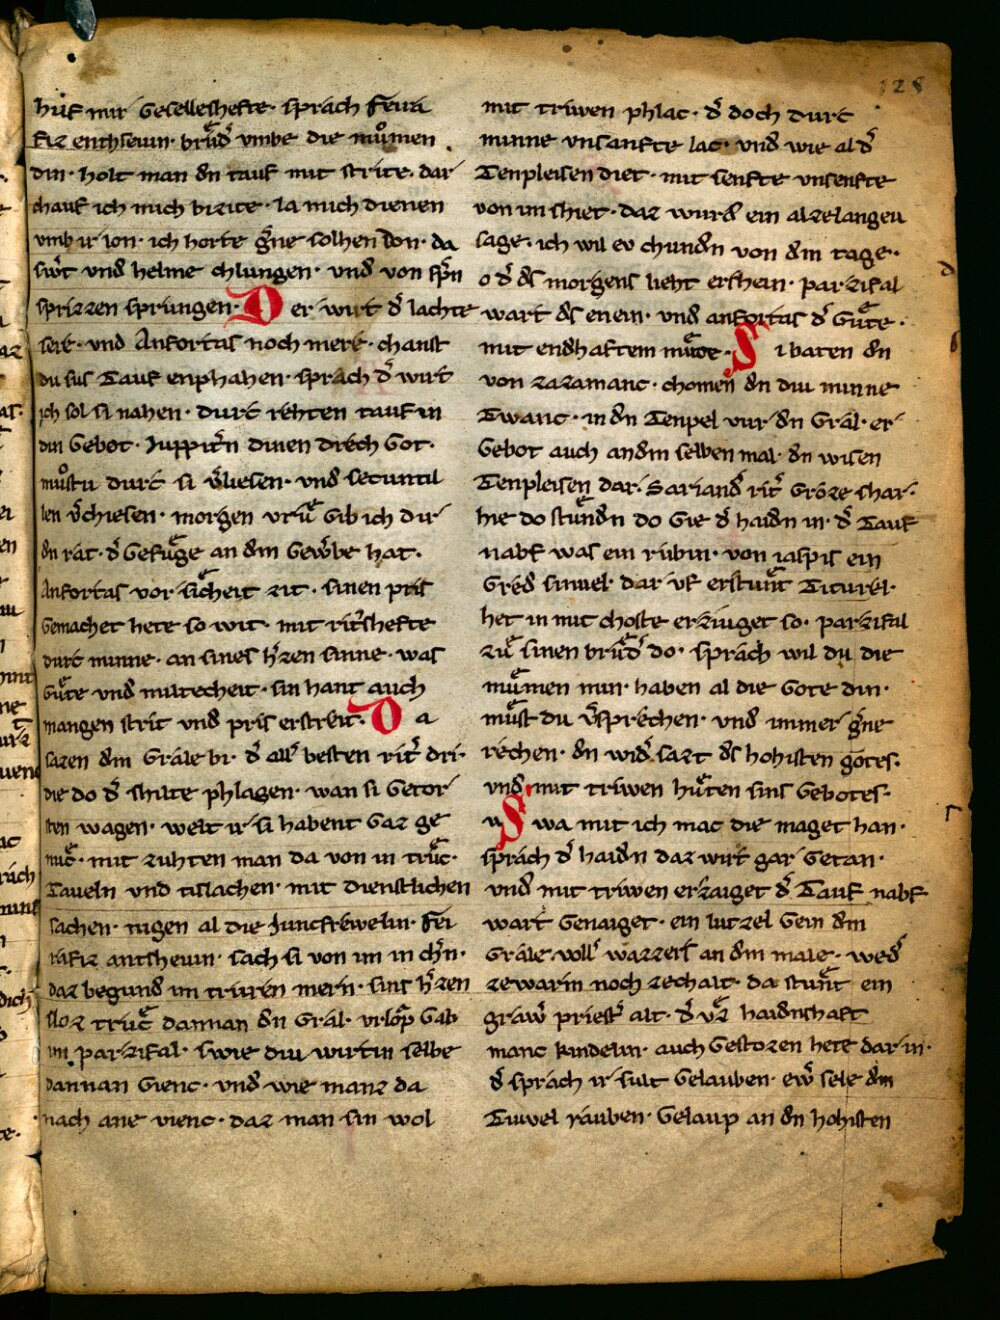 128
huf mir Geselleshefte· sprach feira
fiz enthsewin· brůd̛ vmbe die můmen
din· holt man dn tauf mit strite· dar
chauf ich mich bizite· la mich dienen
vmb ir lon· ich horte g̛ne solhen don· da
sw̛t und helme chlungen· und von sp̛n
sprizzen sprungen· D er wirt d̛ lachte
sere· und Anfortas noch mere· chanst
du sus Tauf enphahen· sprach d̛ wirt
ich sol si nahen· durc rehten tauf in
din Gebot· Juppit̛n dinen drech Got·
můstu durc si v̛liesen· und secuntil
len v̛chiesen· morgen vrů Gib ich dir
dn rat· d̛ Gefůge an dm Gew̛be hat·
Anfortas vor sicheit zit· sinen pris
Gemachet hete so wit· mit rit̛shefte
durc minne· an sines h̛zen sinne· was
Gůte und miltecheit· sin hant auch
mangen strit vnd pris erstreit· D a
sazen dm Grale bi· d̛ all̛ besten rit̛ dri·
die do d̛ shilte phlagen· wan si Getor
sten wagen· welt ir si habent Gaz ge
nůc· mit zuhten man da von in trůc·
Taveln und tislachen· mit dienstlichen
sachen· tugen al die Juncfrewelin· fei
rafiz antshewin· sach si von im in ch̛n·
daz begund im truren mern· sins h̛zen
sloz trůc dannan dn Gral· vrlǎp Gab
im parzifal· swie diu wirtin selbe
dannan Gienc· und wie manz da
nach ane vienc· daz man sin wol
mit triwen phlac· d̛ doch durc
minne vnsanfte lac· vnd wie al d̛
Tenpleisen diet· mit senfte vnsenfte
von im shiet· daz wurd ein alzelangeu
sage· ich wil ev chundn von dm tage·
o d̛ ds morgens lieht ershein· parzifal
wart ds enein· und anfortas d̛ Gůte·
mit endhaftem můte· S i baten dn
von zazamanc· chomen dn diu minne
Twanc· in dn Tenpel vur dn Gral· er
Gebot auch andm selben mal· dn wisen
Tenpleisen dar· Sariand̛ rit̛ Groze shar·
hie do stůndn do Gie d̛ haidn in· d̛ Tauf
nabf was ein rubin· von iaspis ein
Gred sinwel· dar vf erstůnt Titurel·
het in mit choste erziuget so· parzifal
zů sinen brůd̛ do· sprach wil du die
můmen min· haben al die Gote din·
můst du v̛sprechen· und immer g̛ne
rechen· dn wid̛sazt ds hohisten gotes·
und mit triwen hůten sins Gebotes·
S wa mit ich mac die maget han·
sprach d̛ haidn daz wirt gar Getan·
und mit triwen erzaiget d̛ Tauf nabf
wart Genaiget· ein lutzel Gein dm
Grale voll̛ wazzers an dm male· wed̛
zewarm noch zechalt· da stůnt ein
graw̛ priest̛ alt· d̛ vz haidnshaft
manc kindelin· auch Gestozen hete dar in·
d̛ sprach ir sult Gelauben· ew̛ sele dm
Tiuwel rauben· Gelaup an dn hohisten